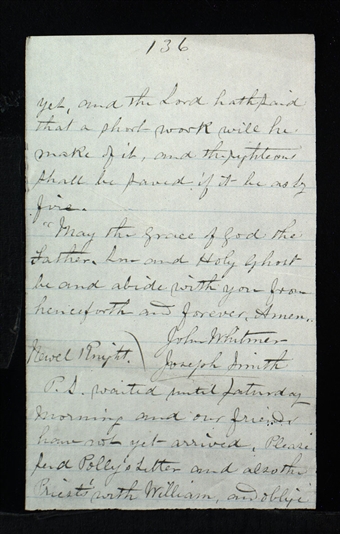 136
yet, and the Lord hath said
that a short work will he
make of it, and the righteous
shall be saved if it be as by
fire.
"May the Grace of God the
Father. Son and Holy Ghost
be and abide with you from
henceforth and forever, Amen.
John Whitmer
Newel Knight. ) Joseph Smith
P.S. waited until Saturday
morning and our friends
have not yet arrived, Please
send Polly's Letter and also the
Priests' with William, and oblige